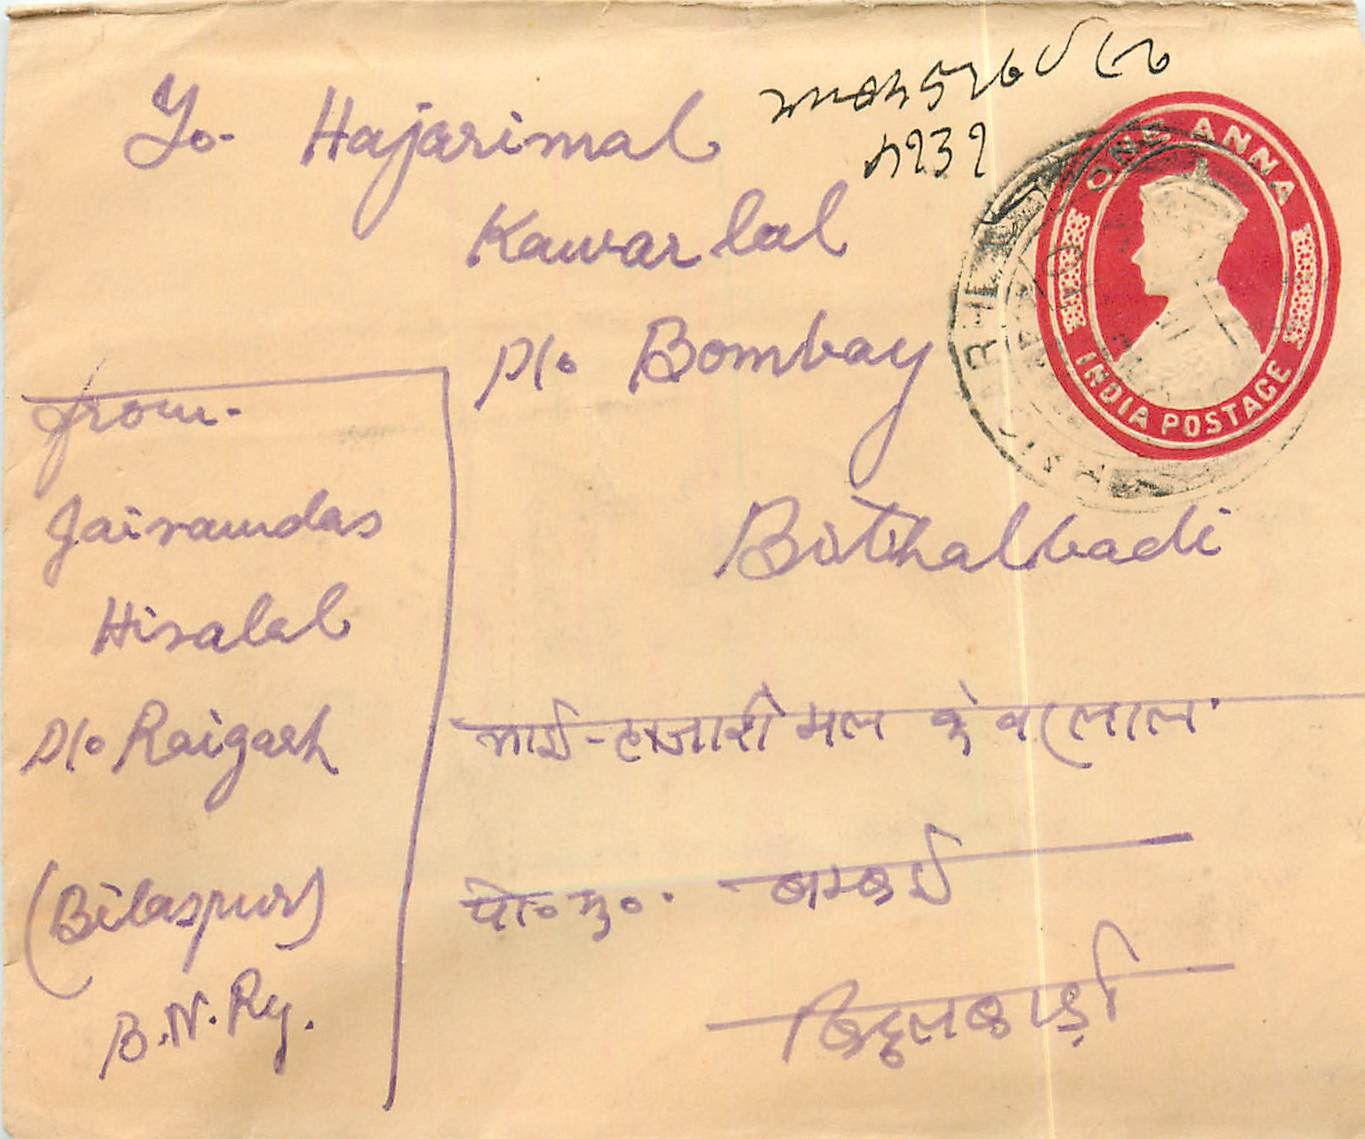 To- Hajarimal
Kawarlal
P/o Bombay
Bitthalbadi
ONE ANNA
INDIA POSTAGE
from-
Jairamdas
Hiralal
P/o Raigarh
(Bilaspur)
B.N.Ry.
भाई-हजारीमल केवरलाल
पो० मु०. बम्बई
बिठ्ठलबाड़ी